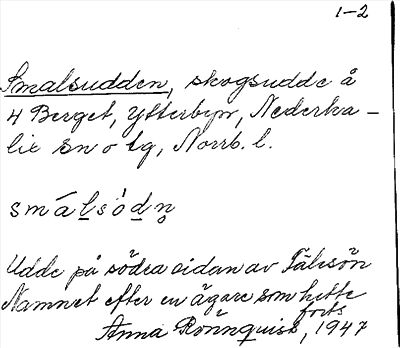 1-2
Smalsudden, skogsudde å
4 Berget, Ytterbyn, Nederka-
lix sn o tg, Norrb. l.
smálsödn
Udde på södra sidan av Tålesön
Namnet efter en ägare som hette
forts
Anna Rönnquist, 1947